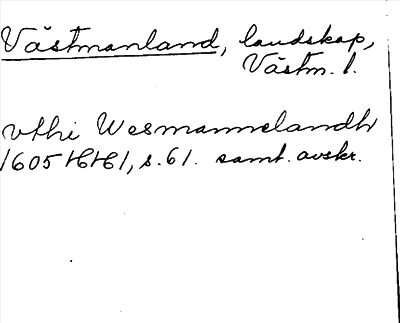 Västmanland, landskap,
Västm. l.
vthi Wesmannelandh
1605 HH 1, s. 61. samt. avskr.